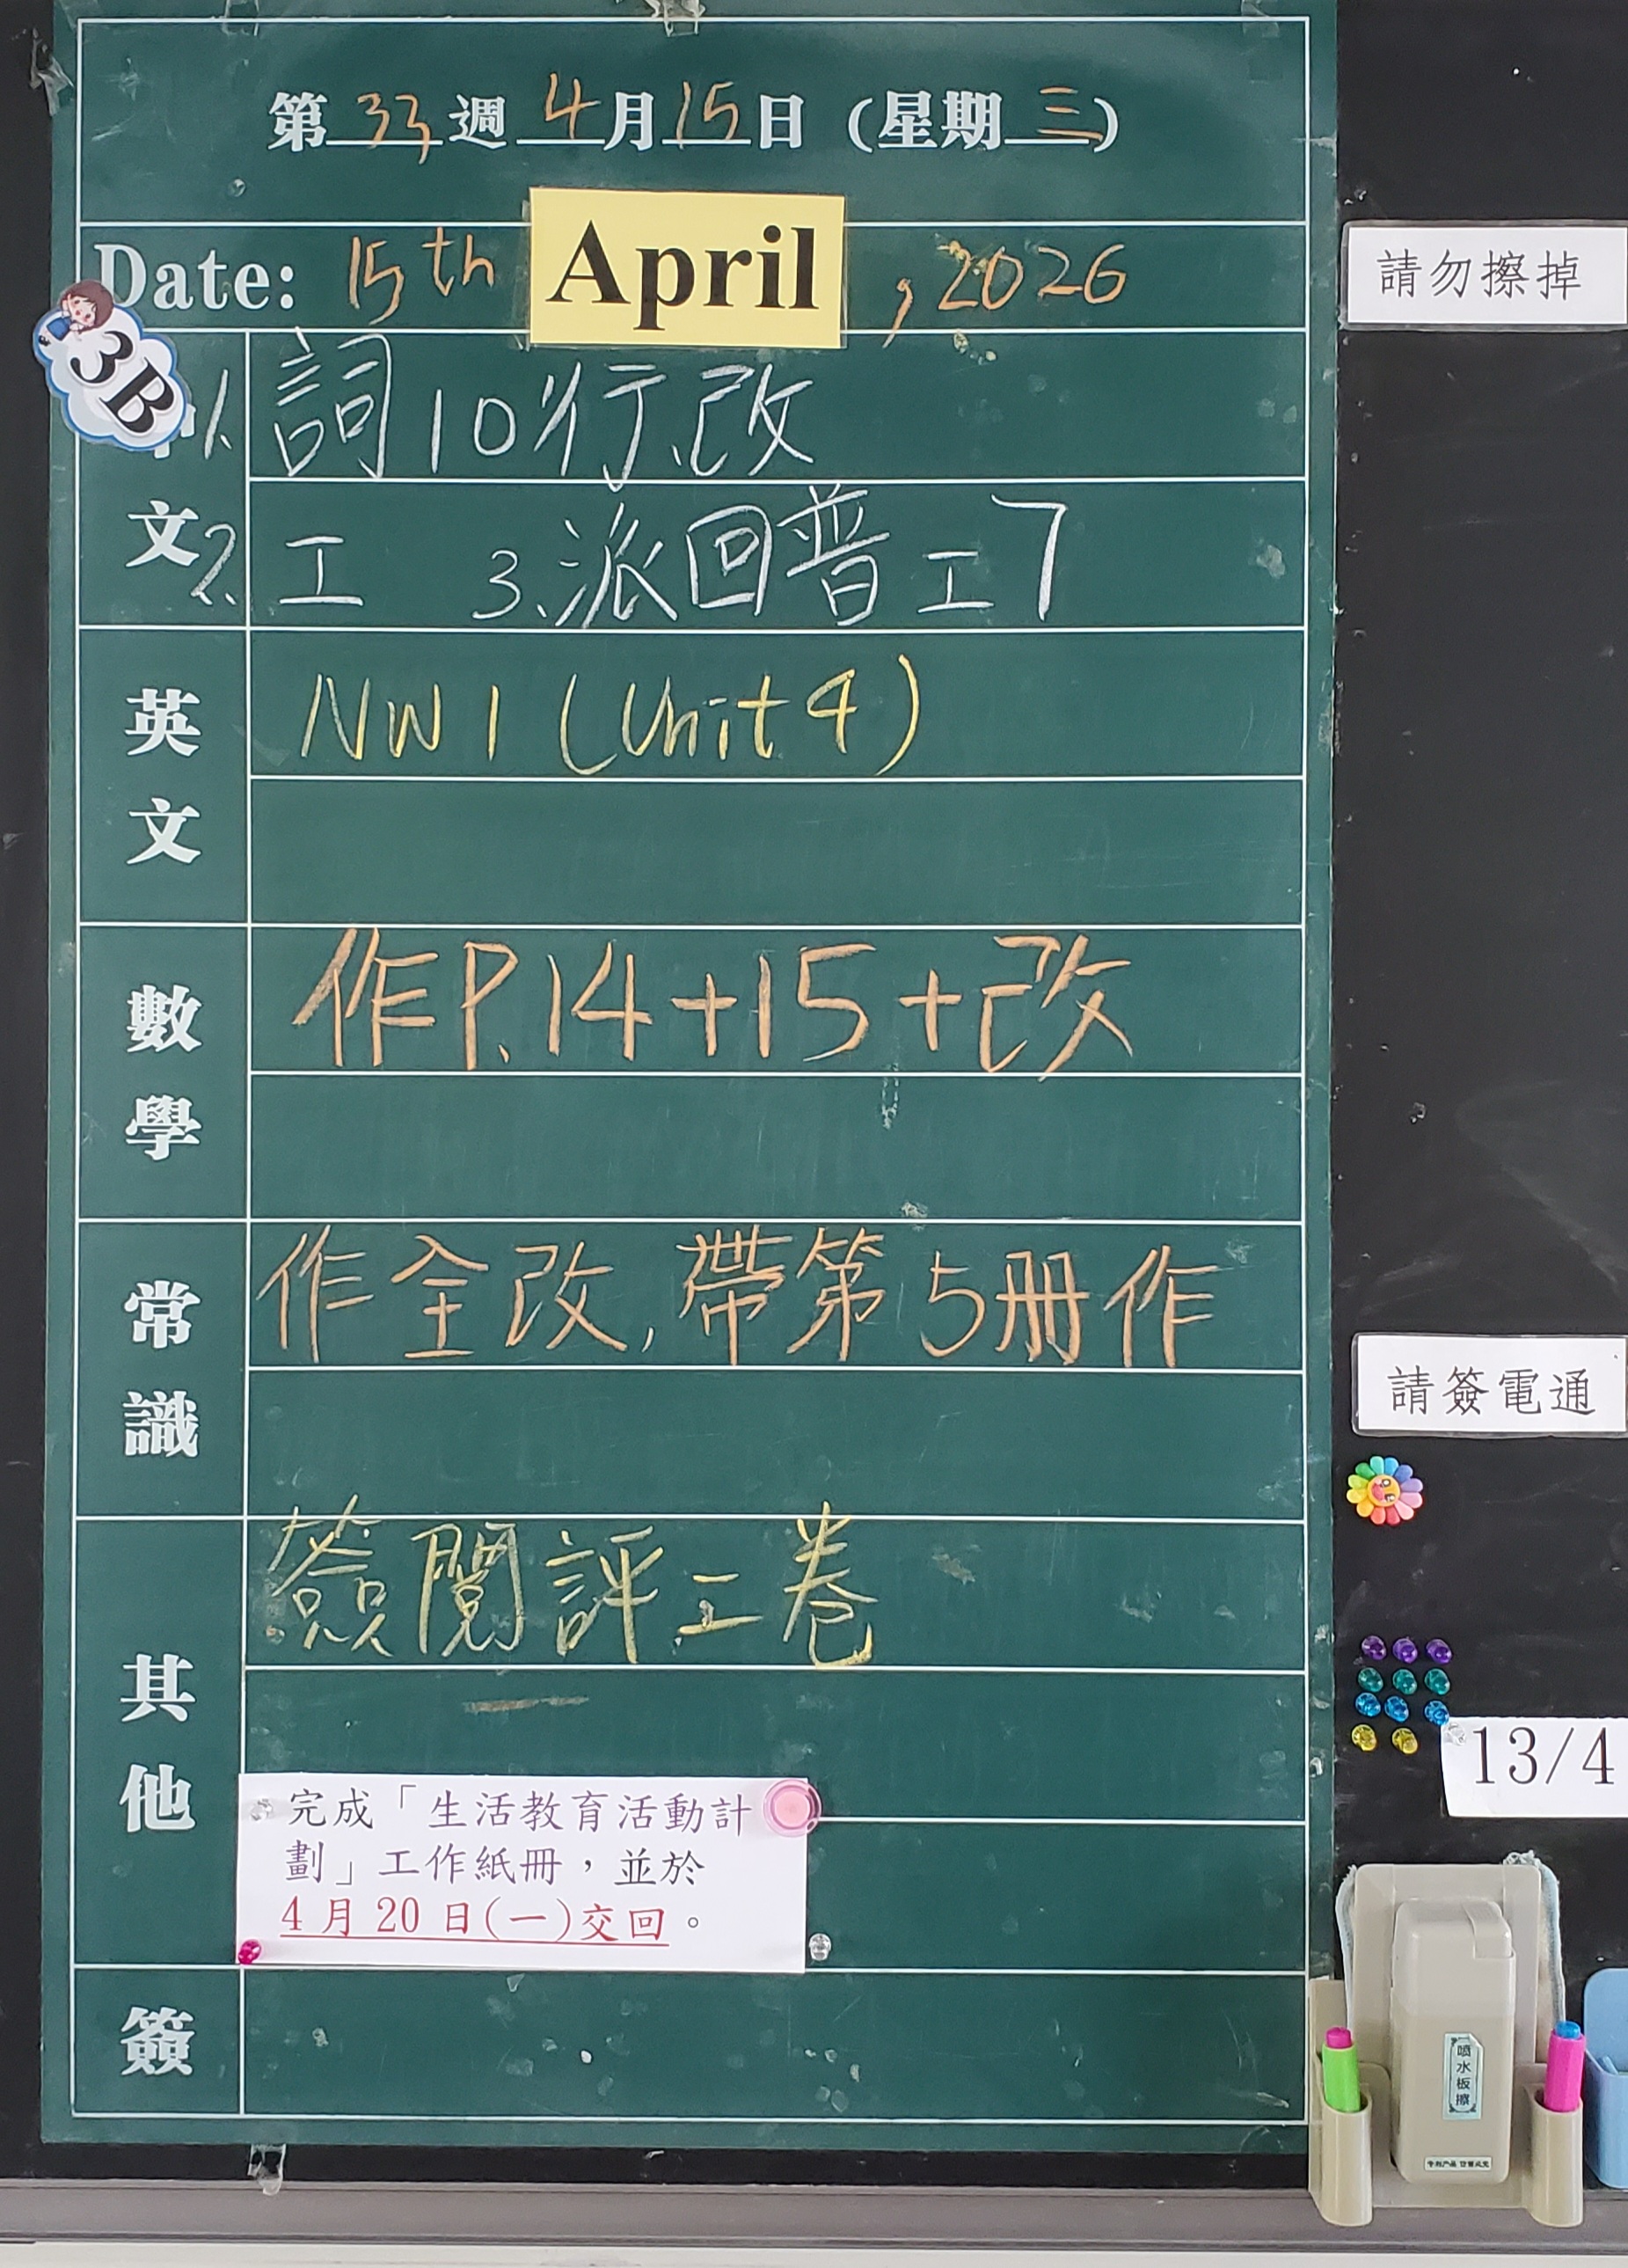 第33週4月15日(星期三)
Date: 15th April, 2026
3B
1. 詞10行、改
文 2. 工 3. 派回普工7
英文
NW1 (Unit 4)
數學
作P.14+15+改
常識
作全改, 帶第5冊作
其他
簽閱評工卷
完成「生活教育活動計
劃」工作紙冊，並於
4月20日(一)交回。
簽
請勿擦掉
請簽電通
13/4
喷水板擦